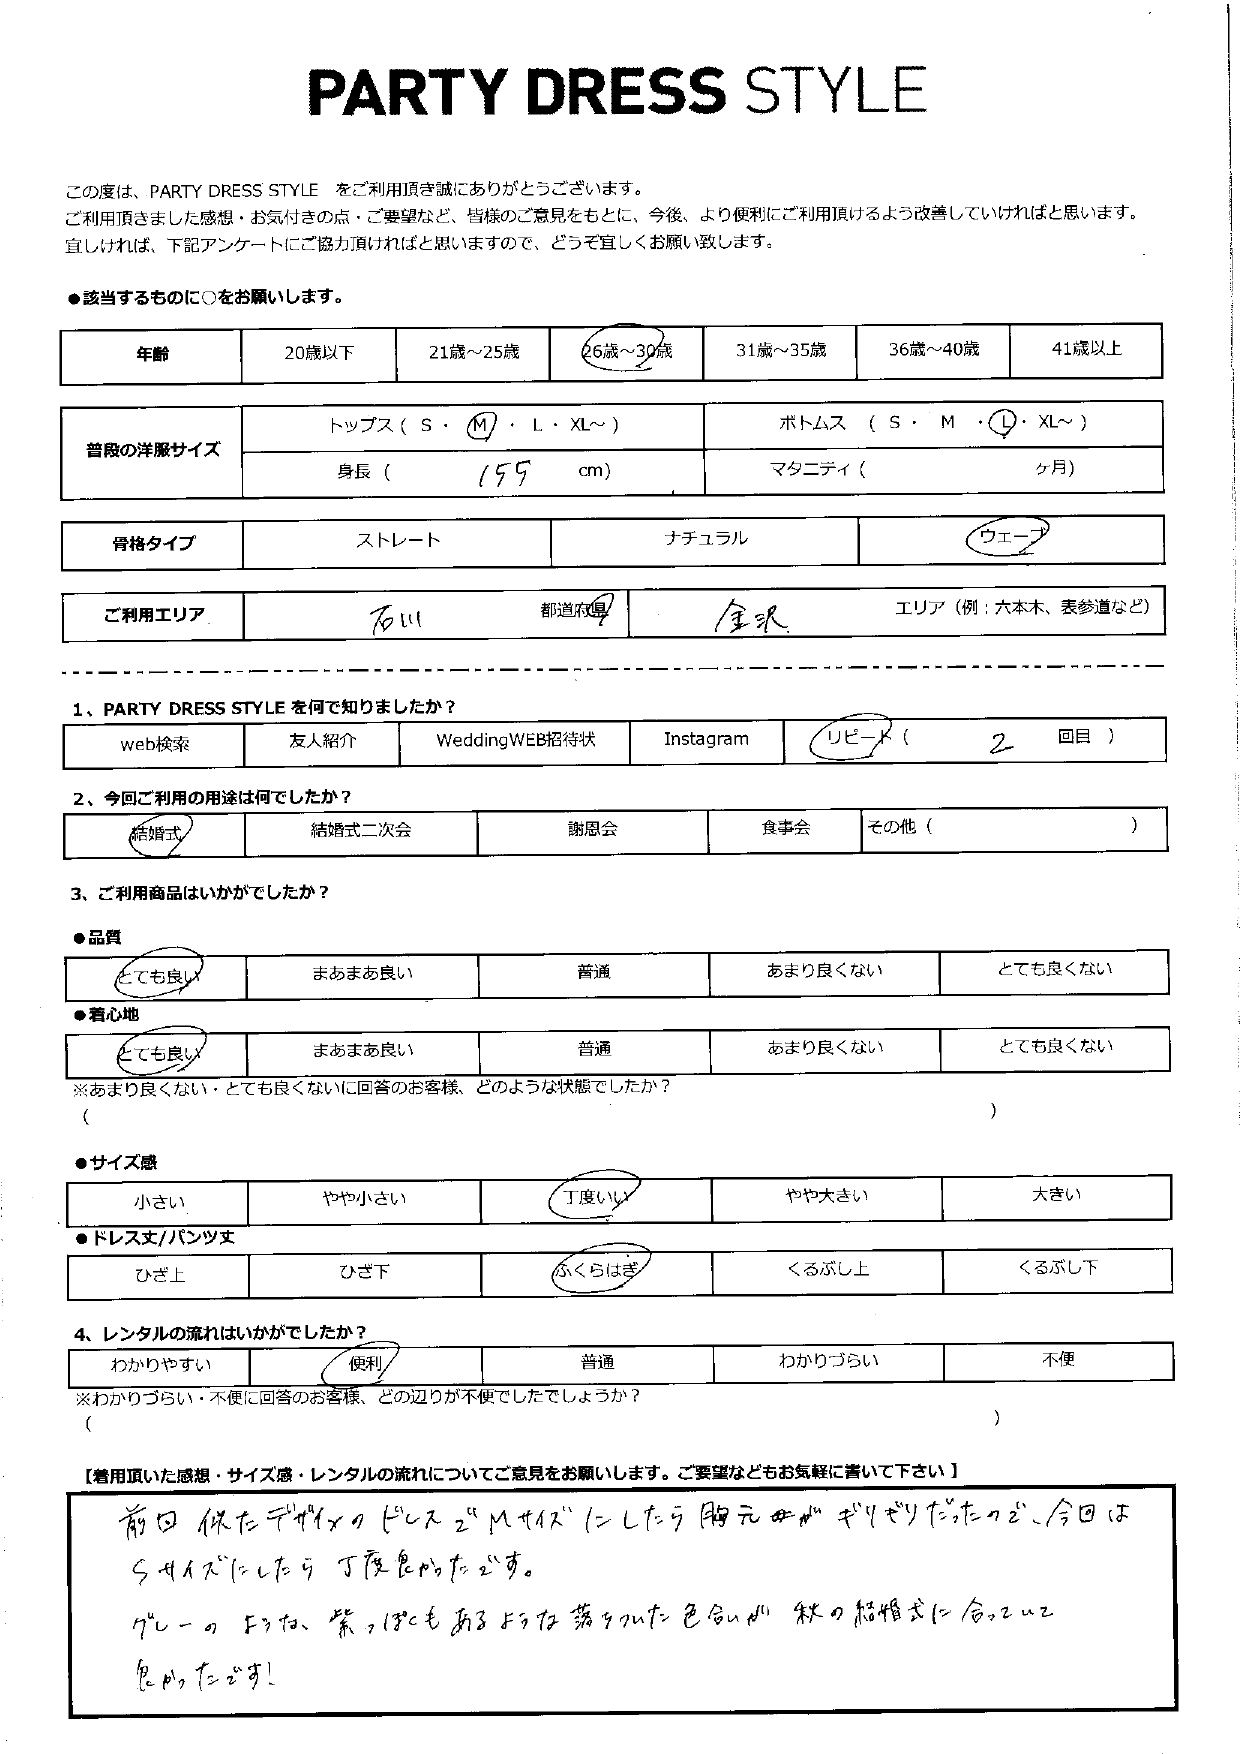 PARTY DRESS STYLE
この度は、PARTY DRESS STYLE をご利用頂き誠にありがとうございます。
ご利用頂きました感想・お気付きの点・ご要望など、皆様のご意見をもとに、今後、より便利にご利用頂けるよう改善していければと思います。
宜しければ、下記アンケートにご協力頂ければと思いますので、どうぞ宜しくお願い致します。
●該当するものに○をお願いします。
年齢 20歳以下 21歳～25歳 26歳～30歳 31歳～35歳 36歳～40歳 41歳以上
普段の洋服サイズ
トップス ( S ・ M ・ L ・ XL～ ) ボトムス ( S ・ M ・ L ・ XL～ )
身長 ( 155 cm) マタニティ ( ヶ月)
骨格タイプ ストレート ナチュラル ウェーブ
ご利用エリア 石川 都道府県 金沢 エリア（例：六本木、表参道など）
1、PARTY DRESS STYLE を何で知りましたか？
web検索 友人紹介 WeddingWEB招待状 Instagram リピート ( 2 回目 )
2、今回ご利用の用途は何でしたか？
結婚式 結婚式二次会 謝恩会 食事会 その他 ( )
3、ご利用商品はいかがでしたか？
●品質
とても良い まあまあ良い 普通 あまり良くない とても良くない
●着心地
とても良い まあまあ良い 普通 あまり良くない とても良くない
※あまり良くない・とても良くないに回答のお客様、どのような状態でしたか？
( )
●サイズ感
小さい やや小さい 丁度いい やや大きい 大きい
●ドレス丈/パンツ丈
ひざ上 ひざ下 ふくらはぎ くるぶし上 くるぶし下
4、レンタルの流れはいかがでしたか？
わかりやすい 便利 普通 わかりづらい 不便
※わかりづらい・不便に回答のお客様、どの辺りが不便でしたでしょうか？
( )
【着用頂いた感想・サイズ感・レンタルの流れについてご意見をお願いします。ご要望などもお気軽に書いて下さい 】
前回 似たデザインの ドレスで Mサイズにしたら 胸元が ギリギリだったので、今回は
Sサイズにしたら 丁度良かったです。
グレーの ような、紫っぽくも あるような 落ちついた 色合いが 秋の 結婚式に 合っていて
良かったです!